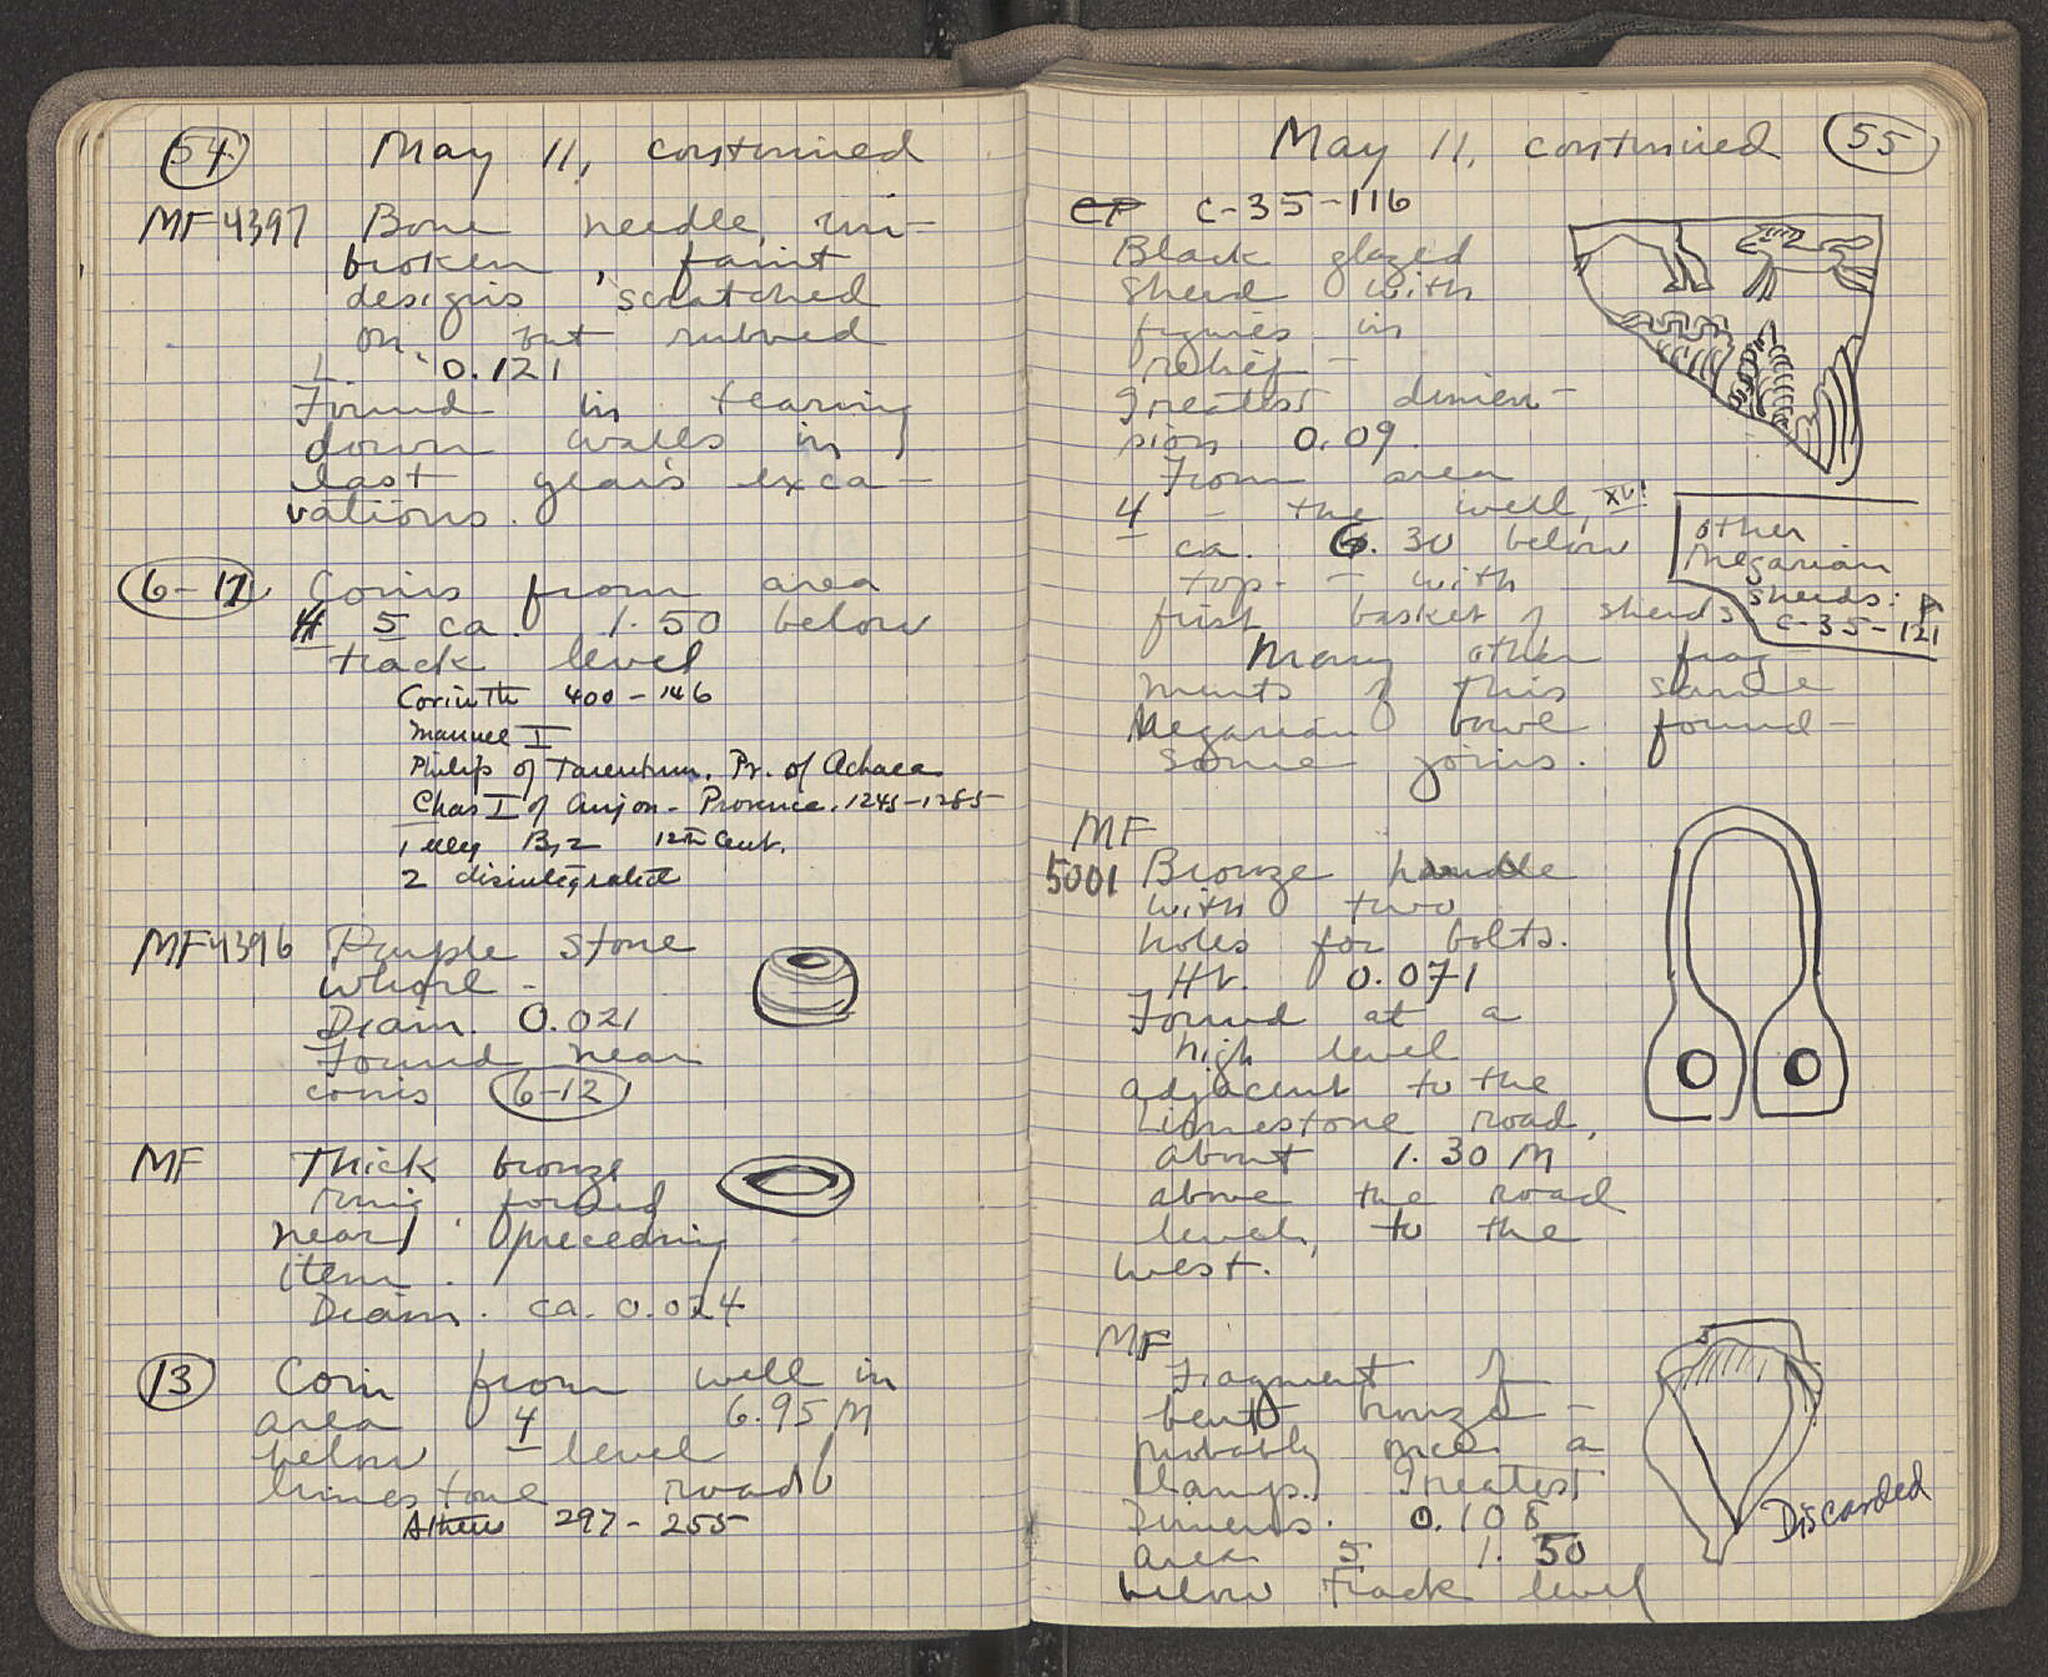 54 May 11, continued
MF 4397 Bone needle, un-
broken, faint
designs scratched
on but rubbed
L. 0.121
Found in tearing
down walls in
last year's exca-
vations.
Coins from area
5 ca. 1.50 below
track level
Corinth 400-146
Manuel I
Philip of Tarentum, Pr. of Achaea
Chas I of Anjou - Provence. 1245-1285
1 illeg Byz 12th Cent.
2 disintegrated
MF4396 Purple stone
whorl -
Diam. 0.021
Found near
coins 6-12
MF Thick bronze
ring found
near preceding
item.
Diam. ca. 0.024
13 Coin from well in
area 4 6.95 M
below level
limestone road
Athens 297-255
May 11, continued 55
C-35-116
Black glazed
sherd with
figures in
relief -
Greatest dimen-
sion 0.09.
From area
4 - the well, XV!
ca. 6.30 below
top - with
first basket of sherds
other
Megarian
sherds:
C-35-121
Many other frag
ments of this same
Megarian bowl found -
Some joins.
MF
5001 Bronze handle
with two
holes for bolts.
Ht. 0.071
Found at a
high level
adjacent to the
Limestone road,
about 1.30 M
above the road
level, to the
west.
MF
Fragment of
bent bronze -
probably once a
lamp. Greatest
Dimens. 0.108
area 5 1.50
below track level
Discarded